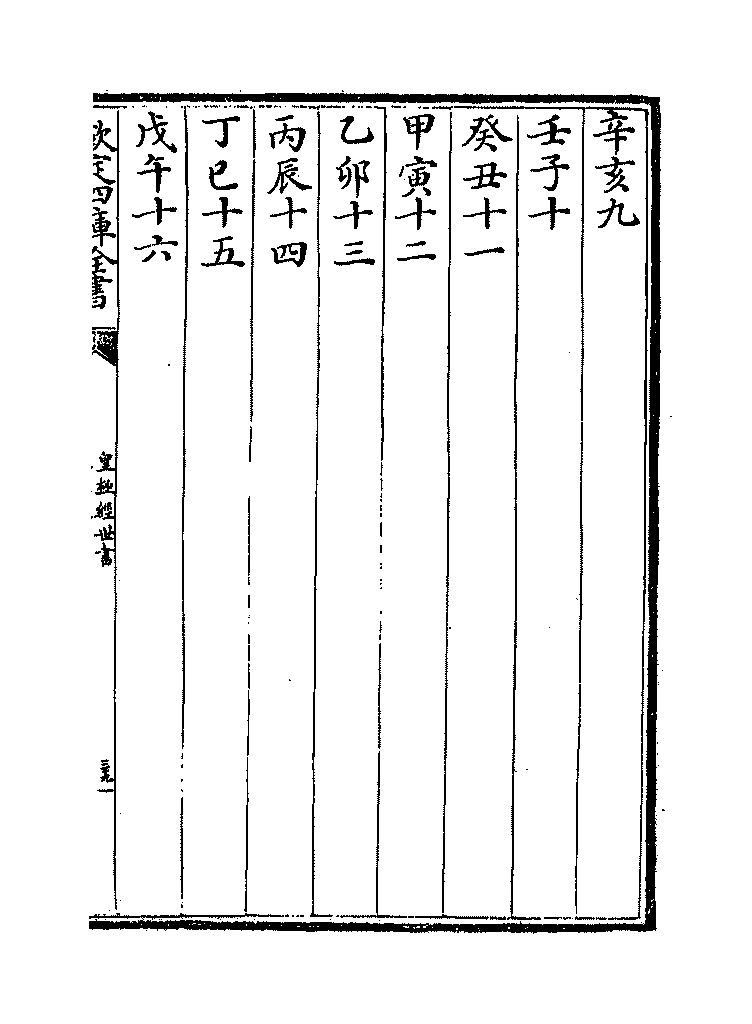 辛亥九
壬子十
癸丑十一
甲寅十二
乙卯十三
丙辰十四
丁巳十五
戊午十六
欽定四庫全書
皇極經世書